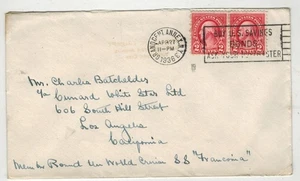 GRAND CENT. ANNEX N.Y.
APR 27
11-PM
1936
BUY U.S. SAVINGS
BONDS
ASK YOUR POSTMASTER
Mr. Charles Batchelder
c/o Cunard White Star Ltd
606 South Hill Street
Los Angeles
California
Member Round the World Cruise SS "Franconia"